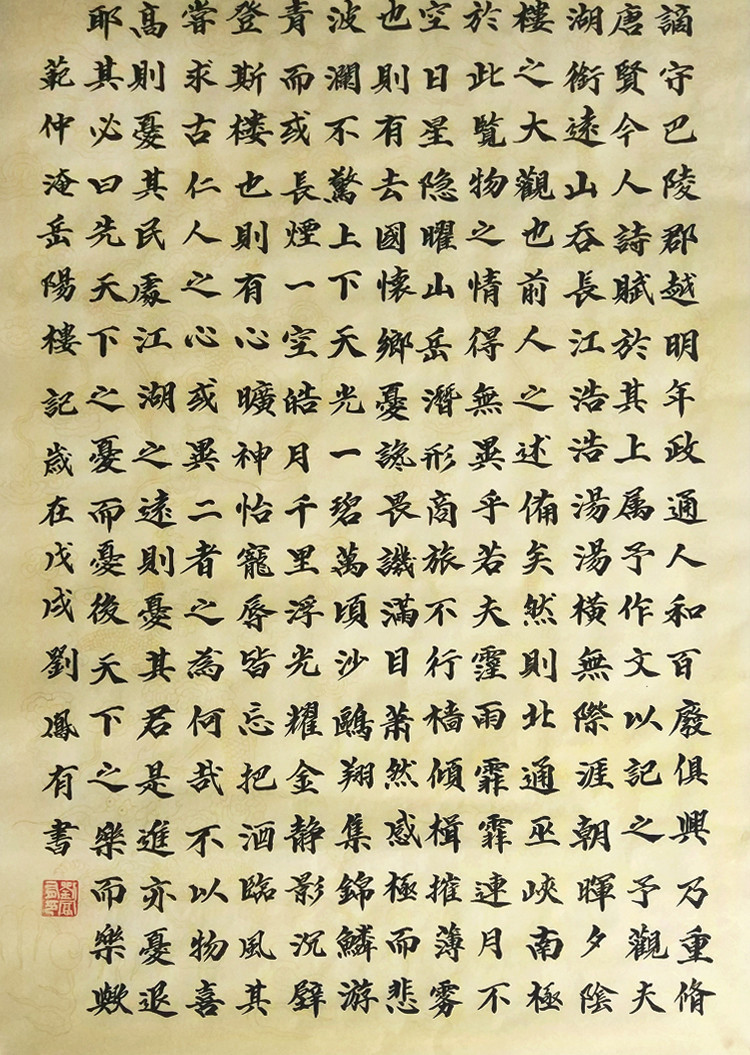 謫守巴陵郡越明年政通人和百廢俱興乃重脩
唐賢今人詩賦於其上属予作文以記之予觀夫
湖銜遠山吞長江浩浩湯湯橫無際涯朝暉夕陰
樓之大觀也前人之述備矣然則北通巫峽南極
於此覽物之情得無異乎若夫霪雨霏霏連月不
空日星隐曜山岳潛形商旅不行檣傾楫摧薄雾
也則有去國懷鄉憂讒畏譏滿目蕭然感極而悲
波瀾不驚上下天光一碧萬頃沙鷗翔集錦鱗游
青而或長煙一空皓月千里浮光耀金静影沉璧
登斯樓也則有心曠神怡寵辱皆忘把酒臨風其
嘗求古仁人之心或異二者之為何哉不以物喜
高則憂其民處江湖之遠則憂其君是進亦憂退
耶其必曰先天下之憂而憂後天下之樂而樂歟
範仲淹岳陽樓記歲在戊戌劉鳳有書